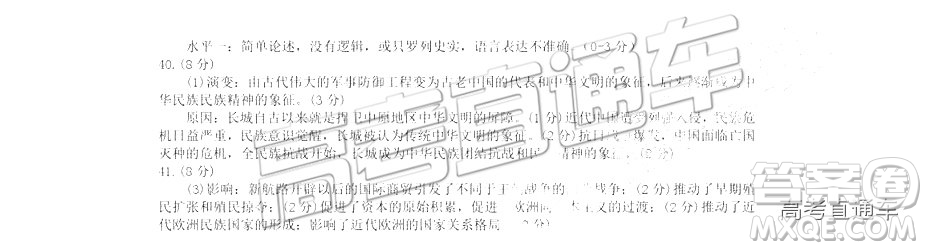 水平一：简单论述，没有逻辑，或只罗列史实，语言表达不准确。(0-3 分)
40.(8 分)
(1)演变：由古代伟大的军事防御工程变为古老中国的代表和中华文明的象征，后来逐渐成为中
华民族民族精神的象征。(3 分)
原因：长城自古以来就是捍卫中原地区中华文明的屏障。(1 分)近代中国遭受列强入侵，民族危
机日益严重，民族意识觉醒，长城被认为传统中华文明的象征。(2 分)抗日 爆发，中国面临亡国
灭种的危机，全民族抗战开始，长城成为中华民族团结抗战和 精神的象征。(2 分)
41.(8 分)
(3)影响：新航路开辟以后的国际商贸引发了不同于 战争的 战争；(2 分)推动了早期殖
民扩张和殖民掠夺；(2 分)推动了近代欧洲资本的原始积累，促进 欧洲向 本主义的过渡；(2 分)推动了近
代欧洲民族国家的形成；影响了近代欧洲的国家关系格局 (2 分)
高考直通车
答案圈
高考直通车
MXQE.COM